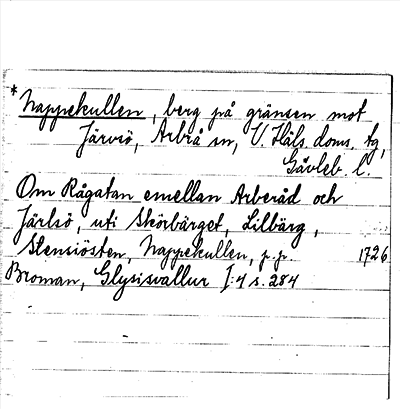 * Nappekullen, berg på gränsen mot
Järvsö, Arbrå sn, V. Häls. doms. tg,
Gävleb. l.
Om Rågatan emellan Arberåd och
Järlsö, uti Skörbärget, Lillbärg,
Stensiösten, Nappekullen, p.p. 1726
Broman, Glysisvallur I:4 s. 284